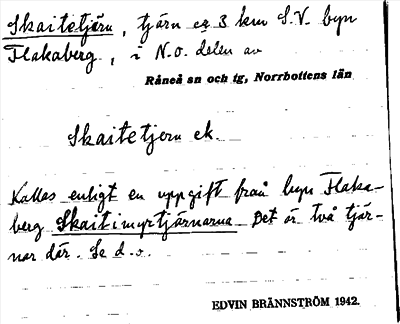 Skaitetjärn, tjärn ca 3 km S.V. byn
Flakaberg, i N.O. delen av
Råneå sn och tg, Norrbottens län
Skaitetjern ek.
Kallas enligt en uppgift från byn Flaka-
berg Skaitimyrtjärnarna Det är två tjär-
nar där. Se d.o.
EDVIN BRÄNNSTRÖM 1942.